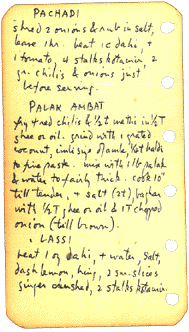 PACHADI
shred 2 onions & rub in salt,
leave 1 hr. beat 1c dahi, +
1 tomato, 4 stalks kotamir, 2
gr. chilis & onions just
before serving.
PALAK AMBAT
fry 4 red chilis & ½t methi in ½T
ghee or oil. grind with 1 grated
coconut, imli size of amla, ½t haldi
to fine paste. mix with 1 lb palak
& water to fairly thick. cook 10"
till tender, + salt (2t), baghar
with ½T ghee or oil & 1T chopped
onion (till brown).
LASSI
beat 1c dahi, + water, salt,
dash lemon, hing, 2 sm. slices
ginger crushed, 2 stalks kotamir.